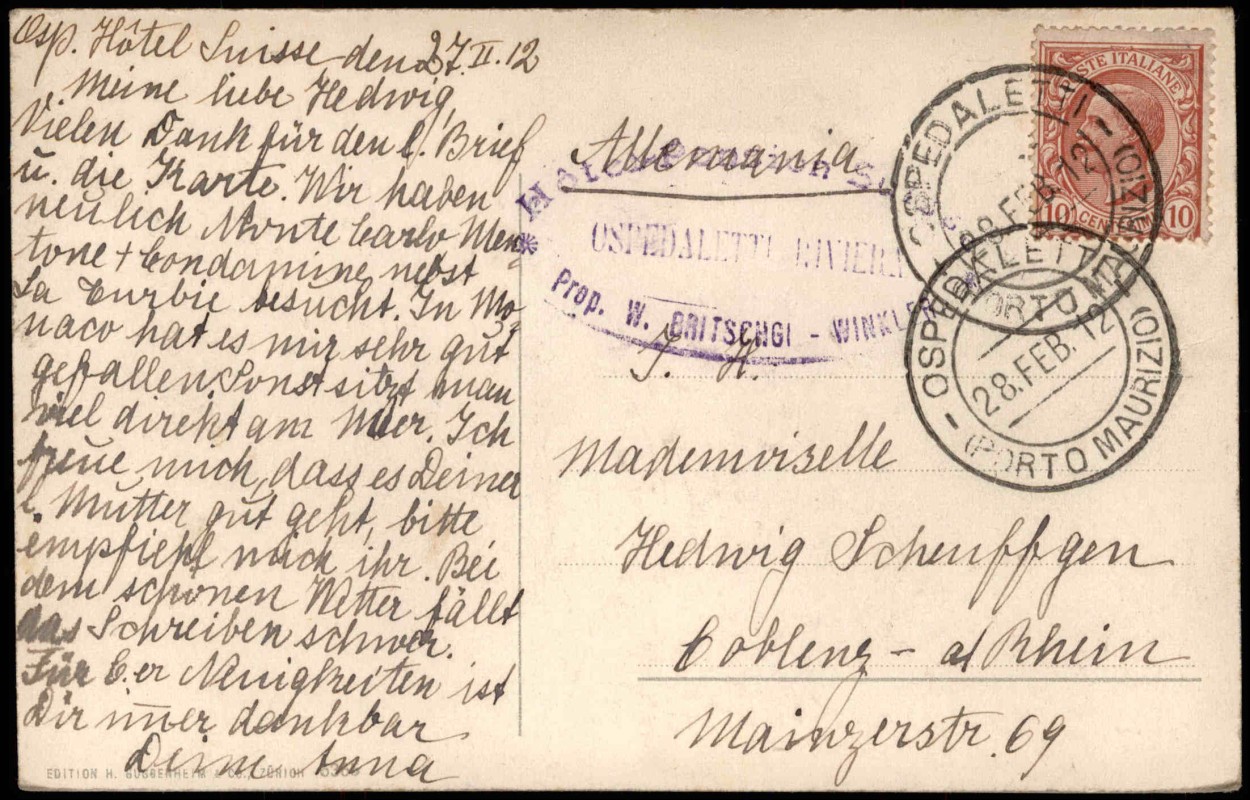 Osp. Hôtel Suisse den 27.II.12
Meine liebe Hedwig,
Vielen Dank für den l. Brief
u. die Karte. Wir haben
neulich Monte Carlo Men-
tone + Condamine nebst
La Turbie besucht. In Mo-
naco hat es mir sehr gut
gefallen. Sonst sitzt man
viel direkt am Meer. Ich
freue mich, dass es Deiner
l. Mutter gut geht, bitte
empfiehl mich ihr. Bei
dem schönen Wetter fällt
das Schreiben schwer.
Für Neuigkeiten ist
Dir imer dankbar
Deine Anna
EDITION H. GUGGENHEIM & Co., ZÜRICH
Allemania
OSPEDALETTI RIVIERA
Prop. W. BRITSCHGI - WINKLER
POSTE ITALIANE
10 CENTESIMI 10
OSPEDALETTI
28.FEB.12
(PORTO MAURIZIO)
OSPEDALETTI
28.FEB.12
(PORTO MAURIZIO)
Mademoiselle
Hedwig Scheuffgen
Coblenz - a/Rhein
Mainzerstr. 69